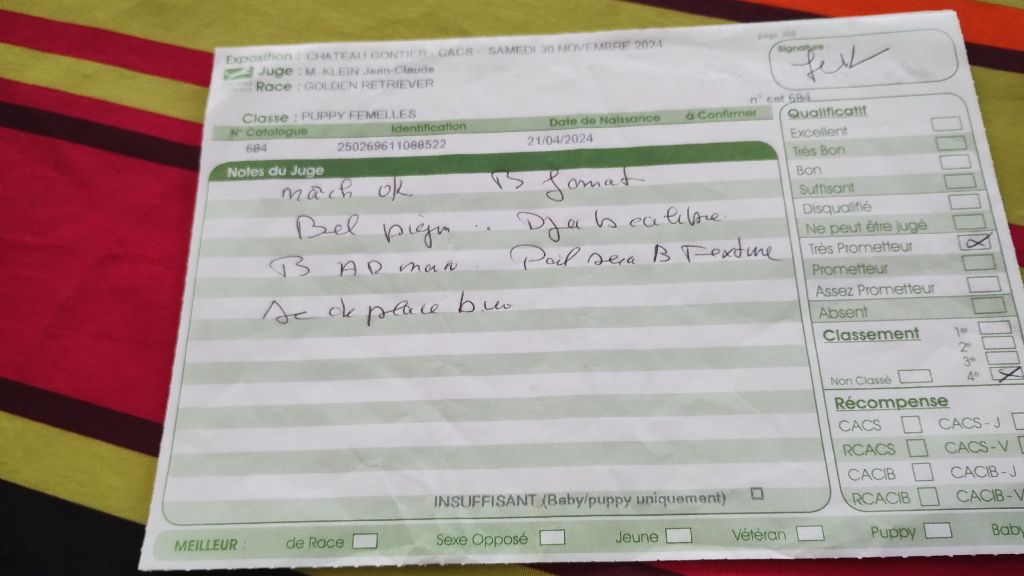 page 350
Exposition : CHATEAU GONTIER - CACS - SAMEDI 30 NOVEMBRE 2024
Juge : M. KLEIN Jean-Claude
Race : GOLDEN RETRIEVER
Signature :
n° cat 684
Classe : PUPPY FEMELLES
N° Catalogue Identification Date de Naissance à Confirmer
684 250269611088522 21/04/2024
Notes du Juge
mâch ok B format
Bel Déjà b calibre
B Poil sera B Texture
Se déplace bien
INSUFFISANT (Baby/puppy uniquement)
Qualificatif
Excellent
Très Bon
Bon
Suffisant
Disqualifié
Ne peut être jugé
Très Prometteur
Prometteur
Assez Prometteur
Absent
Classement 1er
2e
3e
Non Classé 4e
Récompense
CACS CACS - J
RCACS CACS - V
CACIB CACIB - J
RCACIB CACIB - V
MEILLEUR : de Race Sexe Opposé Jeune Vétéran Puppy Baby